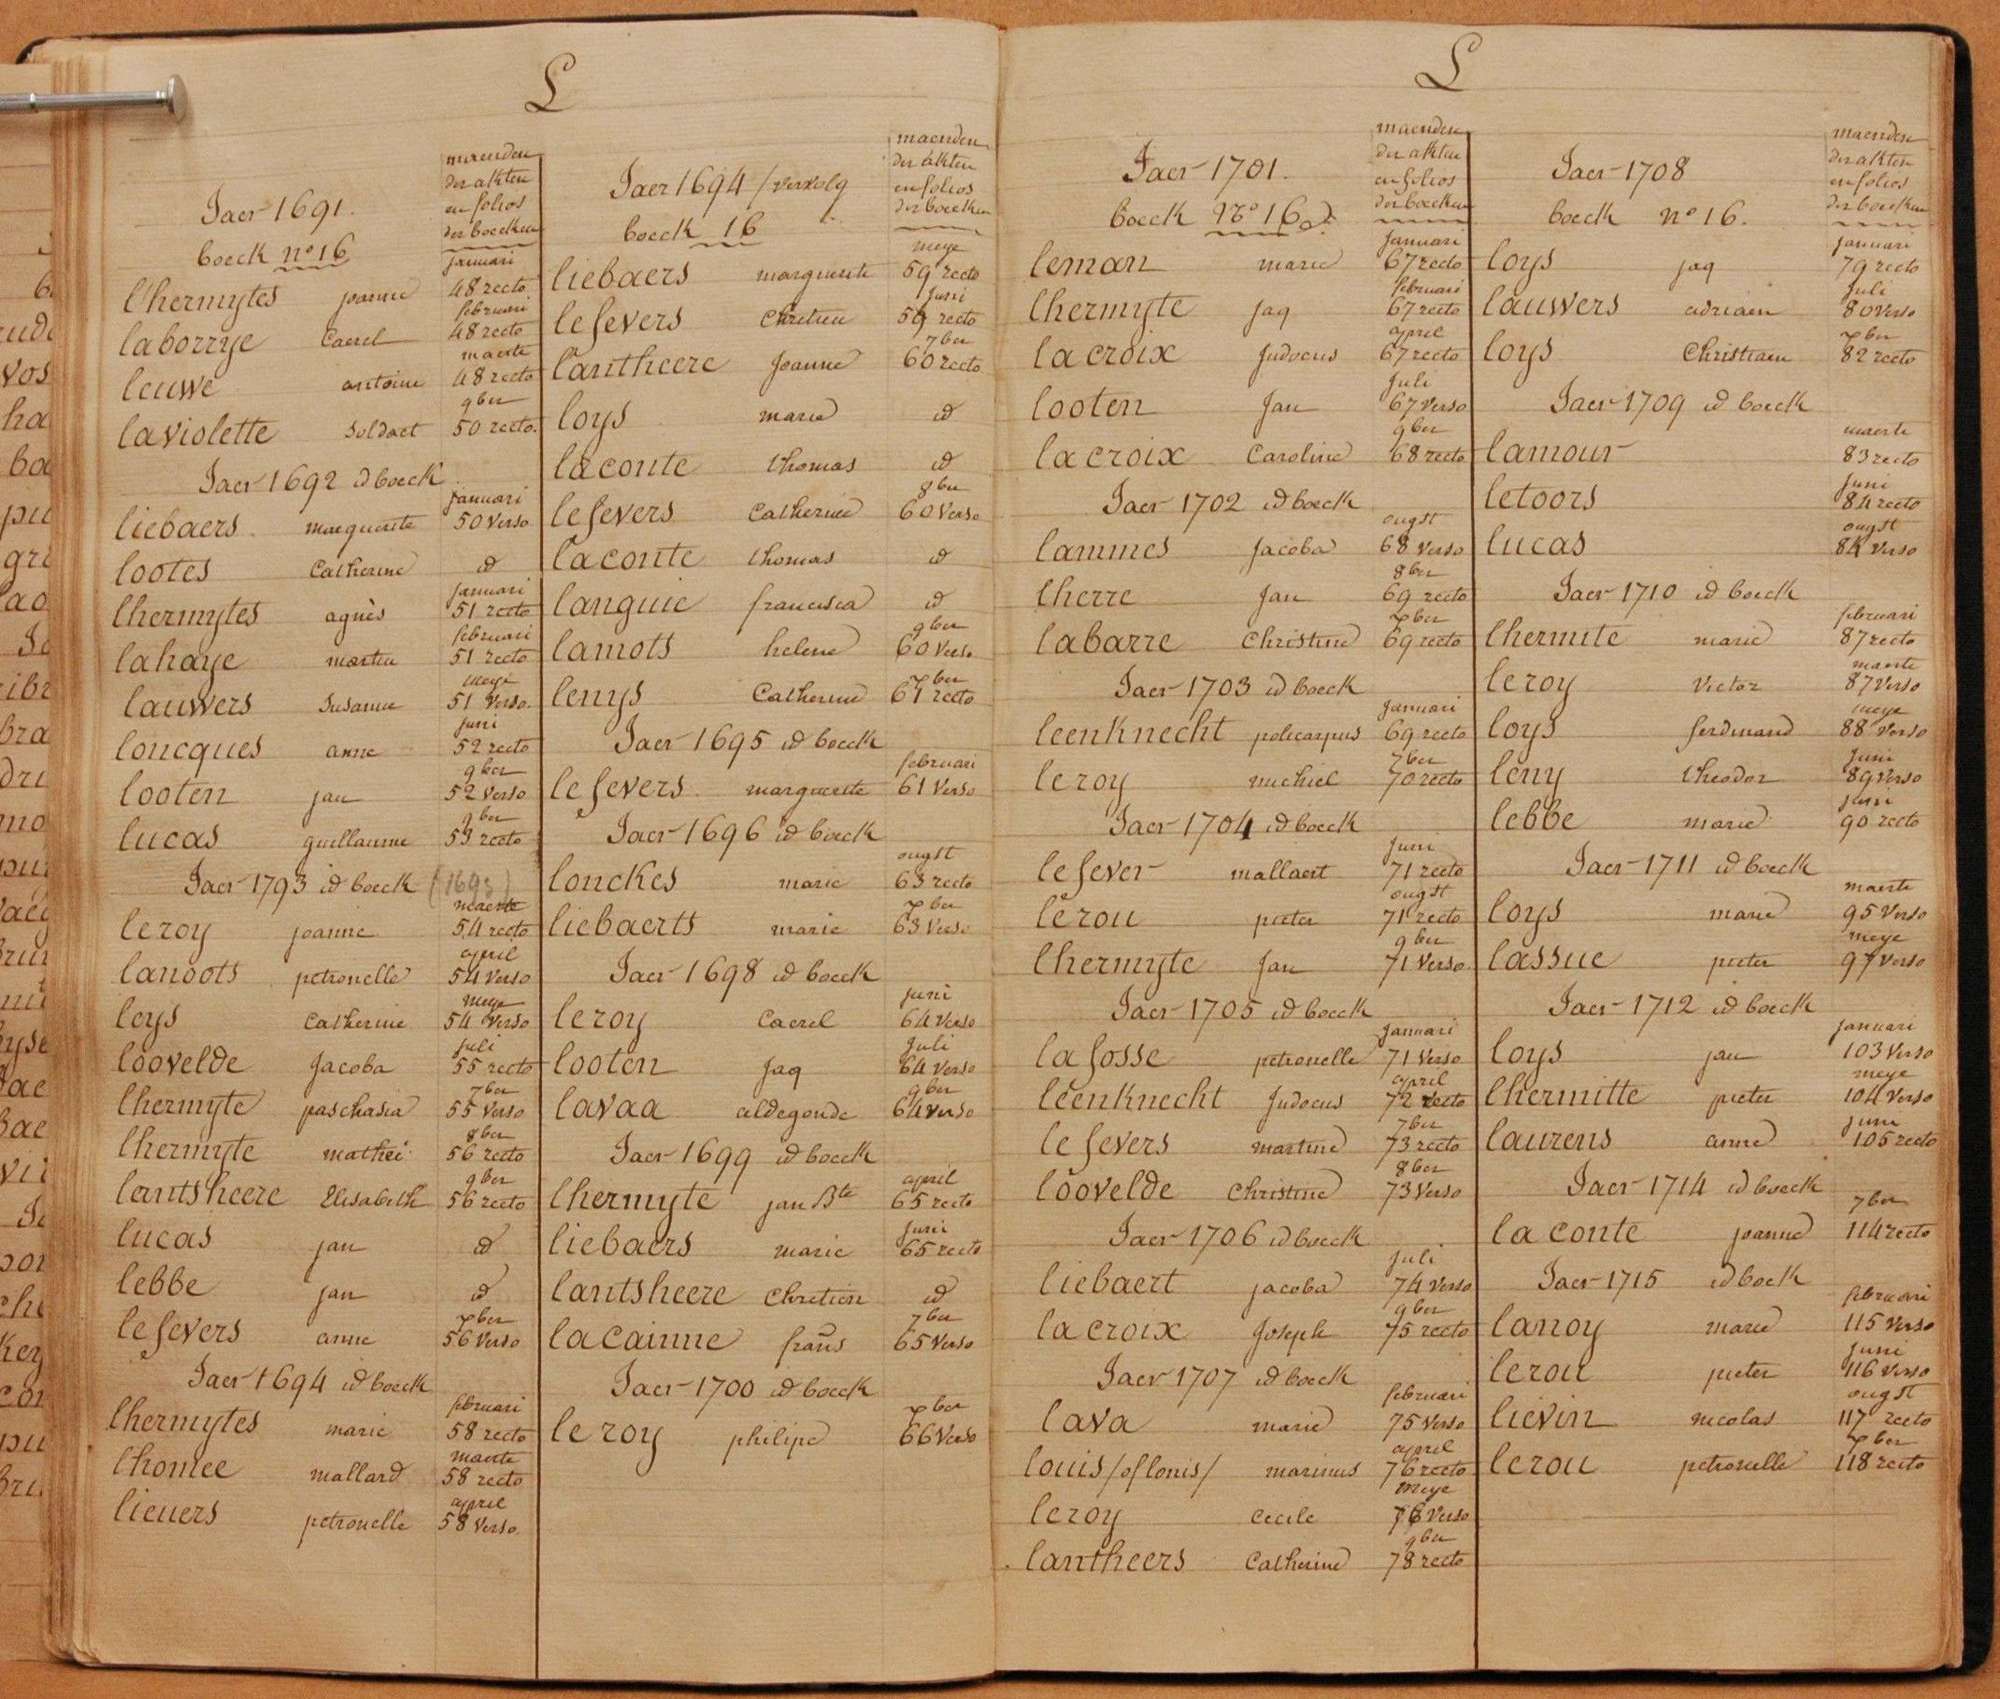 L
maenden
der akten
en folios
der boecken
Jaer 1691.
boeck nº 16
januari
lhermytes joanne 48 recto
februari
laborrye Caerel 48 recto
maerte
leuwe antoine 48 recto
9ber
laviolette soldaet 50 recto.
Jaer 1692 id boeck
januari
liebaers marguerite 50 verso
lootes Catherine id
januari
lhermytes agnès 51 recto
februari
lahaye martin 51 recto
meye
lauwers susanne 51 verso.
juni
loncques anne 52 recto
9ber
looten jan 52 verso
9ber
lucas guillaume 53 recto
Jaer 1793 id boeck (1693)
maerte
leroy joanne 54 recto
april
lanoots petronelle 54 verso
meye
leys Catherine 54 verso
juli
loovelde Jacoba 55 recto
7ber
lhermyte paschasia 55 verso
8ber
lhermyte mathei 56 recto
9ber
lantsheere Elisabeth 56 recto
lucas jan id
lebbe jan id
xber
lefevers anne 56 verso
Jaer 1694 id boeck
februari
lhermytes marie 58 recto
maerte
lhomee mallard 58 recto
april
lieuers petronelle 58 verso.
maenden
der akten
en folios
der boecken
Jaer 1694 / vervolg
boeck 16
meye
liebaers marguerite 59 recto
juni
lefevers Chretien 59 recto
7ber
lantheere Joanne 60 recto
loys marie id
laconte thomas id
8ber
lefevers Catherine 60 verso
laconte thomas id
languie francisca id
9ber
lamots helene 60 verso
xber
lenys Catherine 61 recto
Jaer 1695 id boeck
februari
lefevers marguerite 61 verso
Jaer 1696 id boeck
ougst
lonckes marie 63 recto
xber
liebaerts marie 63 verso
Jaer 1698 id boeck
juni
leroy Caerel 64 verso
juli
looten jaq 64 verso
9ber
lavaa aldegonde 64 verso
Jaer 1699 id boeck
april
lhermyte jan Bte 65 recto
juni
liebaers marie 65 recto
lantsheere Chretien id
7ber
lacainne frans 65 verso
Jaer 1700 id boeck
xber
leroy philipe 66 verso
L
maenden
der akten
en folios
der boecken
Jaer 1701.
boeck Nº 16
januari
leman marie 67 recto
februari
lhermyte jaq 67 recto
april
lacroix Judocus 67 recto
juli
looten Jan 67 verso
9ber
lacroix Caroline 68 recto
Jaer 1702 id boeck
ougst
lammes Jacoba 68 verso
8ber
lherre Jan 69 recto
xber
labarre Christine 69 recto
Jaer 1703 id boeck
januari
leenknecht policarpus 69 recto
7ber
leroy michiel 70 recto
Jaer 1704 id boeck
juni
lefever mallaert 71 recto
ougst
lerou pieter 71 recto
9ber
lhermyte Jan 71 verso
Jaer 1705 id boeck
januari
lafosse petronelle 71 verso
april
leenknecht Judocus 72 recto
7ber
lefevers martine 73 recto
8ber
loovelde Christine 73 verso
Jaer 1706 id boeck
juli
liebaert jacoba 74 verso
9ber
lacroix Joseph 75 recto
Jaer 1707 id boeck
februari
lava marie 75 verso
april
louis /of lonis/ marinus 76 recto
meye
leroy Cecile 76 verso
9ber
lantheers Catherine 78 recto
maenden
der akten
en folios
der boecken
Jaer 1708
boeck nº 16.
januari
loys jaq 79 recto
juli
lauwers adriaen 80 verso
xber
loys Christiaen 82 recto
Jaer 1709 id boeck
maerte
lamour 83 recto
juni
letoors 84 recto
ougst
lucas 84 verso
Jaer 1710 id boeck
februari
lhermite marie 87 recto
maerte
leroy victor 87 verso
meye
loys ferdinand 88 verso
juni
leny theodor 89 verso
juni
lebbe marie 90 recto
Jaer 1711 id boeck
maerte
loys marie 95 verso
meye
lassue pieter 97 verso
Jaer 1712 id boeck
januari
loys jan 103 verso
meye
lhermitte pieter 104 verso
juni
laurens anne 105 recto
Jaer 1714 id boeck
7ber
laconte joanne 114 recto
Jaer 1715 id boek
februari
lanoy marie 115 verso
juni
lerou pieter 116 verso
ougst
lievin nicolas 117 recto
xber
lerou petronelle 118 recto